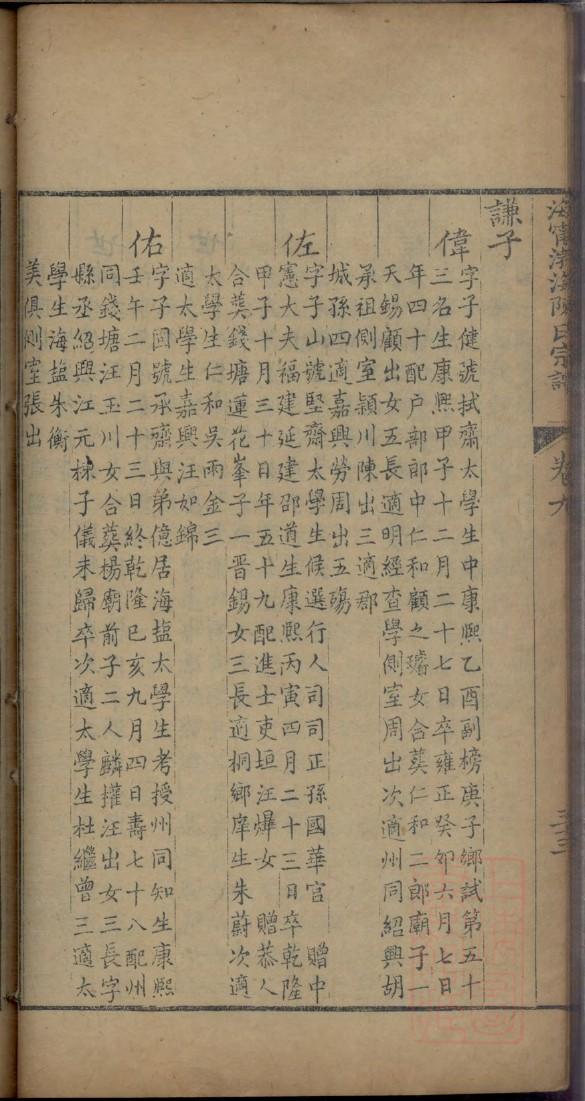 海寧渤海陳氏宗譜
卷九
三三
謙子
偉
字子健號拭齋太學生中康熙乙酉副榜庚子鄉試第五十
三名生康熙甲子十二月二十七日卒雍正癸卯六月七日
年四十配户部郎中仁和顧之璿女合葬仁和二郎廟子一
天錫顧出女五長適明經查學側室周出次適州同紹興胡
承祖側室潁川陳出三適郡
城孫四適嘉興勞周出五殤
佐
字子山號堅齋太學生候選行人司司正孫國華官 贈中
憲大夫福建延建邵道生康熙丙寅四月二十三日卒乾隆
甲子十月三十日年五十九配進士吏垣汪爗女 贈恭人
合葬錢塘蓮花峯子一晋錫女三長適桐鄉庠生朱蔚次適
太學生仁和吳雨金三
適太學生嘉興汪如錦
佑
字子囘號承齋與弟億居海盐太學生考授州同知生康熙
壬午二月二十三日終乾隆已亥九月四日壽七十八配州
同錢塘汪玉川女合葬楊廟前子二人麟㩲汪出女三長字
縣丞紹興江元棟子儀未歸卒次適太學生杜繼曾三適太
學生海盐朱衡
美俱側室張出